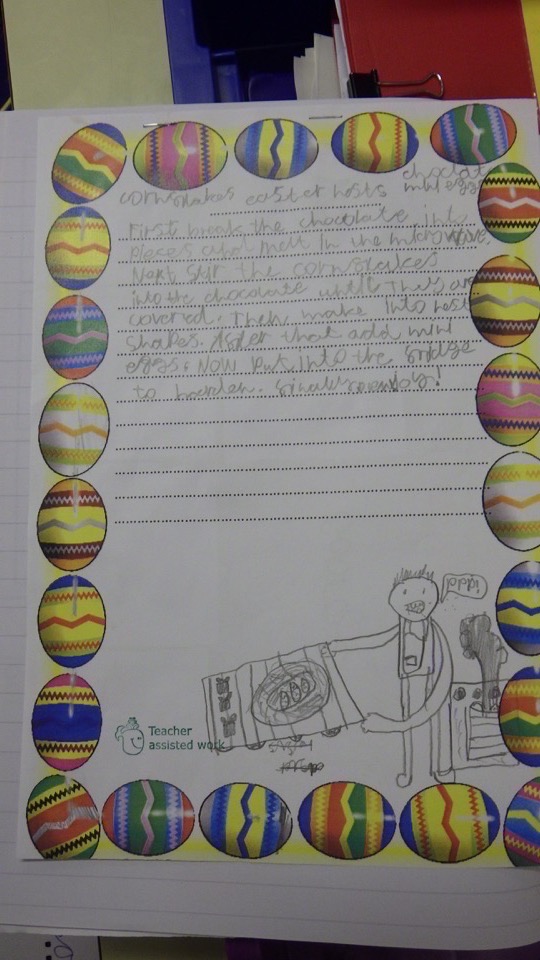 cornflakes easter nests
chocolate
mini eggs
First break the chocolate into
pieces and melt in the microwave.
Next stir the cornflakes
into the chocolate until they are
covered. Then make into nest
shapes. After that add mini
eggs. Now put into the fridge
to harden. finally enjoy!
Teacher
assisted work